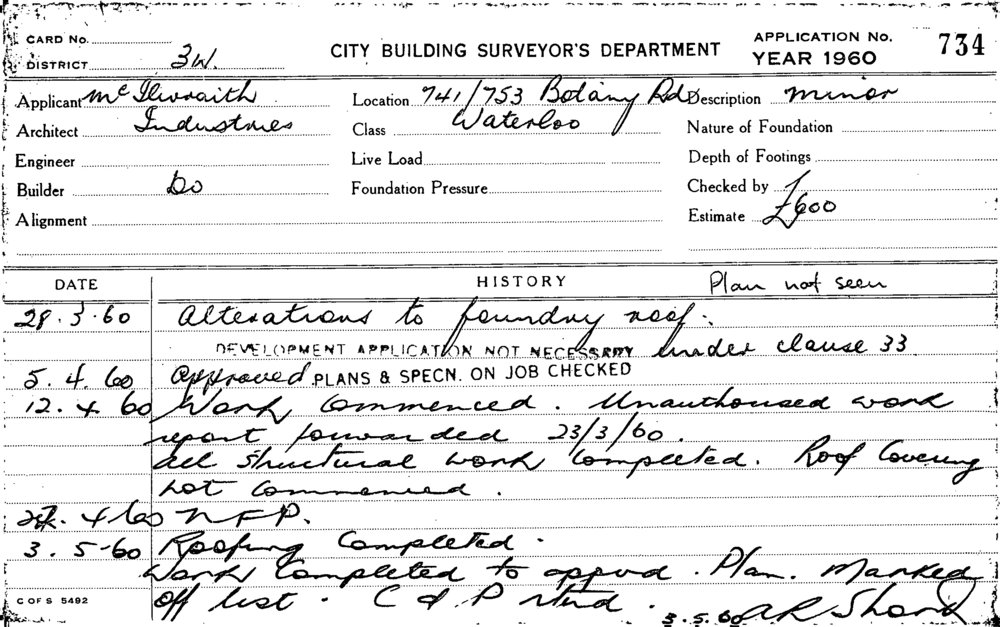 CARD No.
DISTRICT 3W.
CITY BUILDING SURVEYOR'S DEPARTMENT
APPLICATION No.
YEAR 1960
734
Applicant Mc Ilwraith
Architect Industries
Engineer
Builder Do
Alignment
Location 741/753 Botany Rd
Class Waterloo
Live Load
Foundation Pressure
Description Minor
Nature of Foundation
Depth of Footings
Checked by
Estimate £600
DATE HISTORY Plan not seen
28.3.60 Alterations to foundry roof.
DEVELOPMENT APPLICATION NOT NECESSARY under clause 33
5.4.60 Approved PLANS & SPECN. ON JOB CHECKED
12.4.60 Work Commenced. Unauthorised work
report forwarded 23/3/60.
All structural work completed. Roof Covering
not commenced.
4 60 N F P.
3.5-60 Roofing Completed.
Work Completed to appvd. Plan. Marked
off list. C & P
3.5.60 A R
C OF S 5492